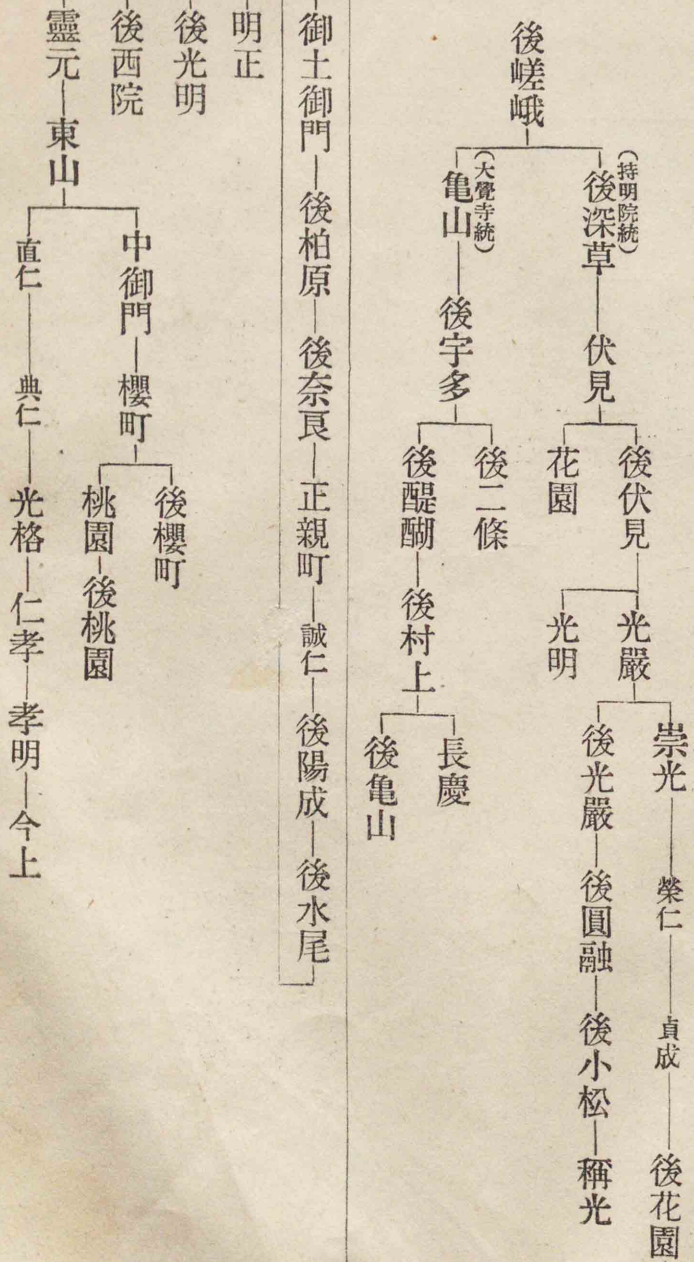 後嵯峨
(持明院統)
後深草
伏見
後伏見
花園
光嚴
光明
崇光
榮仁
貞成
後花園
後光嚴
後圓融
後小松
稱光
(大覺寺統)
亀山
後宇多
後二條
後醍醐
後村上
長慶
後亀山
御土御門
後柏原
後奈良
正親町
誠仁
後陽成
後水尾
明正
後光明
後西院
靈元
東山
中御門
櫻町
後櫻町
桃園
後桃園
直仁
典仁
光格
仁孝
孝明
今上